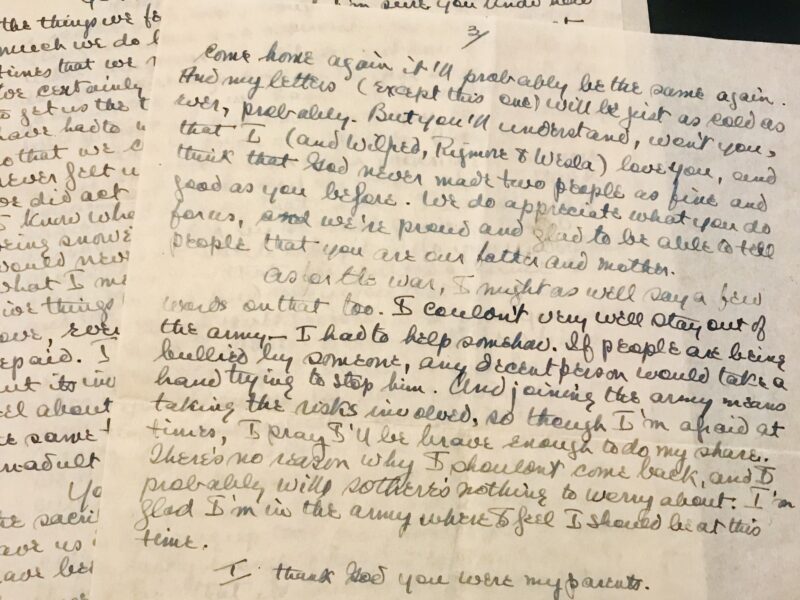 I'm sure you
the things we
much we do
times that we
we certainly
to get us the
have had to
so that we
never felt
we did act
I know
being
would
what I
give things
love, ever
repaid. I
but
feel about
the same
adult
the
gave us
have
3/
come home again it'll probably be the same again.
And my letters (except this one) will be just as cold as
ever, probably. But you'll understand, won't you,
that I (and Wilfred, Rigmore & Wesla) love you, and
think that God never made two people as fine and
good as you before. We do appreciate what you do
for us, and we're proud and glad to be able to tell
people that you are our father and mother.
As for the war, I might as well say a few
words on that too. I couldn't very well stay out of
the army – I had to help somehow. If people are being
bullied by someone, any decent person would take a
hand trying to stop him. And joining the army means
taking the risks involved, so though I'm afraid at
times, I pray I'll be brave enough to do my share.
There's no reason why I shouldn't come back, and I
probably will, so there's nothing to worry about. I'm
glad I'm in the army where I feel I should be at this
time.
I thank God you were my parents.